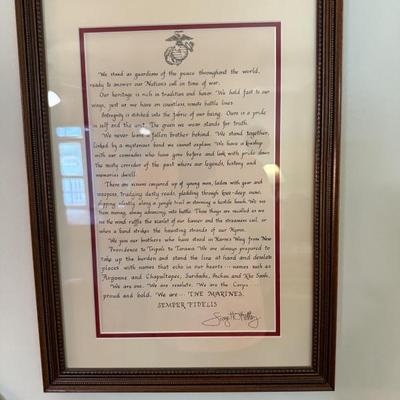 We stand as guardians of the peace throughout the world,
ready to answer our Nation's call in time of war.
Our heritage is rich in tradition and honor. We hold fast to our
ways, just as we have on countless, remote battle lines.
Integrity is stitched into the fabric of our being. Ours is a pride
in self and the unit. The green we wear stands for truth.
We never leave a fallen brother behind. We stand together,
linked by a mysterious bond we cannot explain. We have a kinship
with our comrades who have gone before and look with pride down
the misty corridor of the past where our legends, history and
memories dwell.
There are visions conjured up of young men, laden with gear and
weapons, trudging dusty roads, plodding through knee-deep snow,
slipping silently along a jungle trail or storming a hostile beach. We see
them moving, always advancing, into battle. These things are recalled as we
see the wind ruffle the scarlet of our banner and the streamers curl, or
when a band strikes the haunting strands of our Hymn.
We join our brothers who have stood in Harm's Way from New
Providence to Tripoli to Tarawa. We are always prepared to
take up the burden and stand the line at hard and desolate
places with names that echo in our hearts... names such as
Argonne and Chapultapec, Suribachi, Inchon and Khe Sanh.
We are one. We are resolute. We are the Corps
proud and bold. We are... THE MARINES.
SEMPER FIDELIS